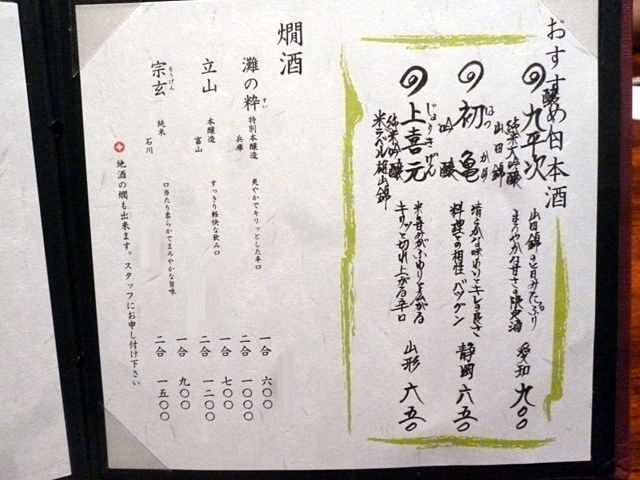 おすすめ日本酒
九平次
醸し人
純米大吟醸
山田錦
愛知 九〇〇
初亀
はつかめ
吟醸
清らかな味わいとキレの良さ
料理との相性バツグン
静岡 六五〇
上喜元
じょうきげん
純米吟醸
米ラベル 雄山錦
米の旨みがふわりと広がる
キリッと切れ上がる辛口
山形 六五〇
燗酒
灘の粋
すい
特別本醸造
兵庫
爽やかでキリッとした辛口
一合 六〇〇
二合 一〇〇〇
立山
本醸造
富山
すっきり軽快な飲み口
一合 七〇〇
二合 一二〇〇
宗玄
そうげん
純米
石川
口当たり柔らかでまろやかな旨味
一合 九〇〇
二合 一五〇〇
地酒の燗も出来ます。スタッフにお申し付け下さい